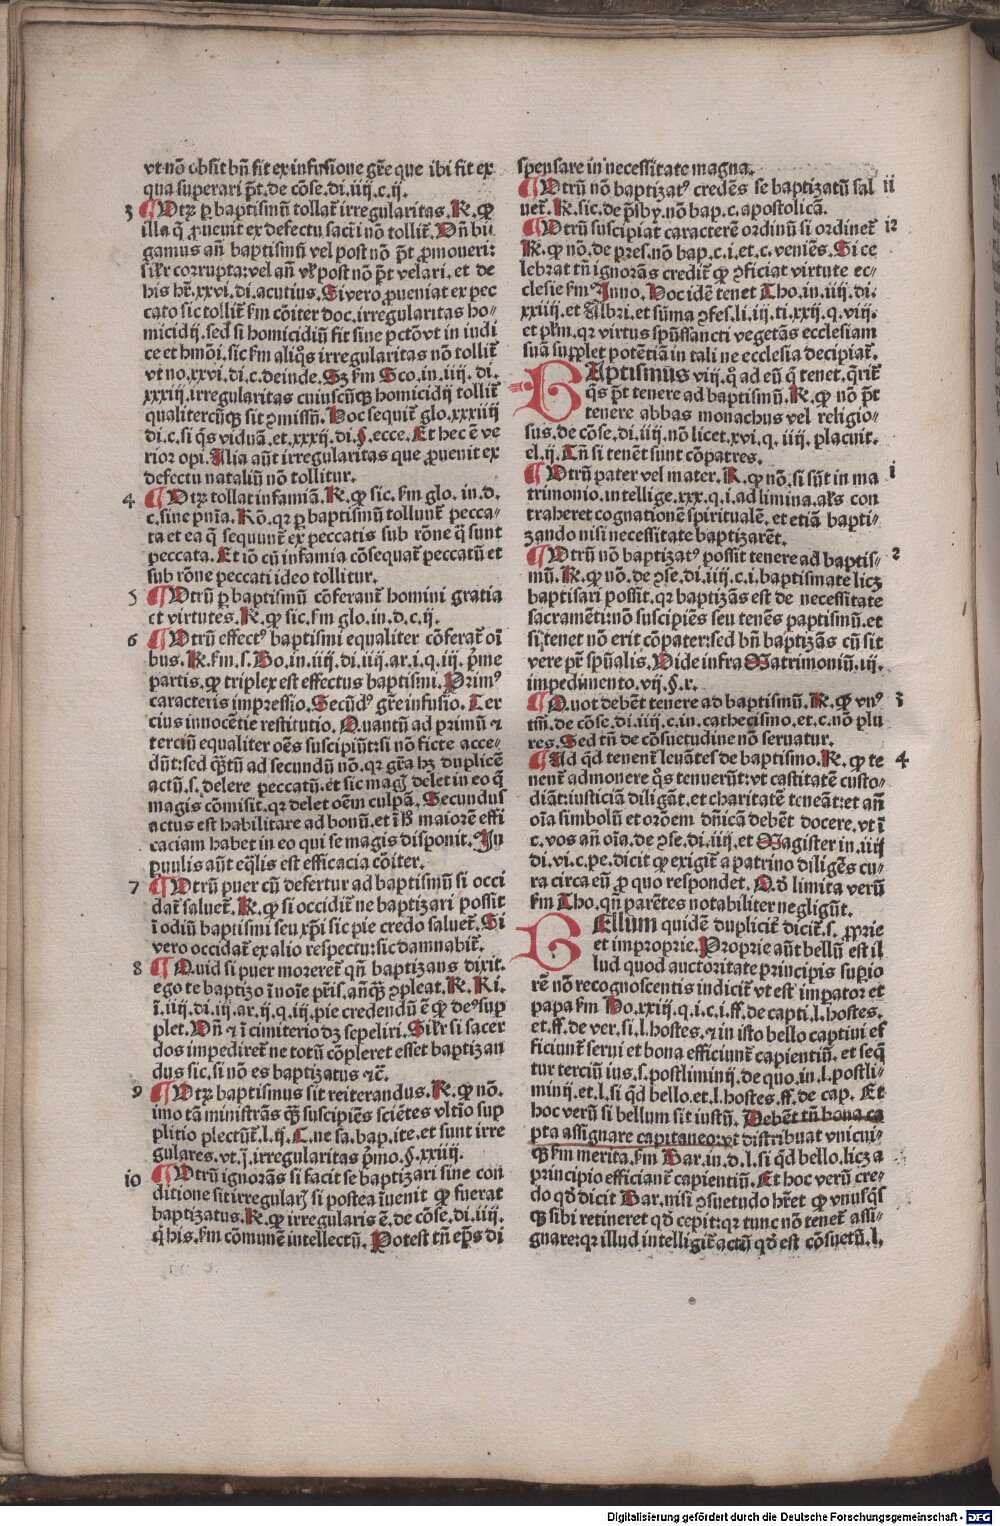 vt nō obsit bn̄ fit ex infusione gr̄e que ibi fit ex
qua superari pn̄t. de cōse. di. iiij. c. ij.
3 ¶ Vtrꝫ ꝑ baptismū tollat᷑ irregularitas. R. ꝙ
illa q̄ ꝓuenit ex defectu sacr̄i nō tollit᷑. Vn̄ bi
gamus añ baptismū vel post nō pōt ꝓmoueri:
sil̄r corrupta: vel añ vl̓ post nō pōt velari. et de
his hr̄. xxvi. di. acutius. Si vero ꝓueniat ex pec
cato sic tollit᷑ ẜm cōiter doc. irregularitas ho-
micidij. sed si homicidiū fit sine pctō vt in iudi
ce et hmōi. sic ẜm aliq̄s irregularitas nō tollit᷑
vt no. xxvi. di. c. deinde. Sꝫ ẜm Sco. in. iiij. di.
xxxiij. irregularitas cuiuscūqꝫ homicidij tollit᷑
qualitercūqꝫ sit ꝯmissū. Hoc sequit᷑ glo. xxxiiij
di. c. si q̄s viduā. et. xxxij. di. §. ecce. Et hec ē ve
rior opi. Alia aūt irregularitas que ꝓuenit ex
defectu nataliū nō tollitur.
4 ¶ Vtrꝫ tollat infamiā. R. ꝙ sic. ẜm glo. in. d.
c. sine pnīa. Rō. qꝛ ꝑ baptismū tollunt᷑ pecca-
ta et ea q̄ sequunt᷑ ex peccatis sub rōne q̄ sunt
peccata. Et iō cū infamia cōsequat᷑ peccatū et
sub rōne peccati ideo tollitur.
5 ¶ Vtrū ꝑ baptismū cōferant᷑ homini gratia
et virtutes. R. ꝙ sic. ẜm glo. in. d. c. ij.
6 ¶ Vtrū effectꝰ baptismi equaliter cōferat᷑ oī
bus. R. ẜm. s. Bo. in. iiij. di. iiij. ar. i. q. iij. pͥme
partis. ꝙ triplex est effectus baptismi. Primꝰ
caracteris impressio. Secūdꝰ gr̄e infusio. Ter
cius innocētie restitutio. Quantū ad primū ⁊
terciū equaliter oēs suscipiūt: si nō ficte acce-
dūt: sed qͣ̄tū ad secundū nō. qꝛ gr̄a hꝫ duplicē
actū. s. delere peccatū. et sic magꝭ delet in eo q̄
magis cōmisit. qꝛ delet oēm culpā. Secundus
actus est habilitare ad bonū. et ī hͦ maiorē effi
caciam habet in eo qui se magis disponit. In
ꝑuulis aūt eq̄lis est efficacia cōiter.
7 ¶ Vtrū puer cū defertur ad baptismū si occi
dat᷑ saluet᷑. R. ꝙ si occidit᷑ ne baptizari possit
ī odiū baptismi seu xp̄i sic pie credo saluet᷑. Si
vero occidat᷑ ex alio respectu: sic damnabit᷑.
8 ¶ Quid si puer moreret᷑ qn̄ baptizans dixit.
ego te baptizo ī noīe pr̄is. añqͣꝫ ꝯpleat. R. Ri.
ī. iiij. di. iij. ar. ij. q. iij. pie credendū ē ꝙ deꝰ sup
plet. Vn̄ ⁊ ī cimiterio dꝫ sepeliri. Sil̄r si sacer
dos impediret᷑ ne totū cōpleret esset baptizan
dus sic. si nō es baptizatus ⁊c̄.
9 ¶ Vtrꝫ baptismus sit reiterandus. R. ꝙ nō.
imo tā ministrās qͣꝫ suscipiēs sciētes vltīo sup
plitio plectūt᷑. l. ij. C. ne sa. bap. ite. et sunt irre
gulares. vt. j. irregularitas pͥmo. §. xxiiij.
10 ¶ Vtrū ignorās si facit se baptizari sine con
ditione sit irregularꝭ si postea īuenit ꝙ fuerat
baptizatus. R. ꝙ irregularis ē. de cōse. di. iiij.
q̄ his. ẜm cōmunē intellectū. Potest tn̄ ep̄s di
spensare in necessitate magna.
¶ Vtrū nō baptizatꝰ credēs se baptizatū sal ii
uet᷑. R. sic. de pͥsby. nō bap. c. apostolicā.
¶ Vtrū suscipiat caracterē ordinū si ordinet᷑ 12
R. ꝙ nō. de pres. nō bap. c. i. et. c. veniēs. Si ce
lebrat tn̄ ignorās credit᷑ ꝙ ꝯficiat virtute ec-
clesie ẜm Inno. Hoc idē tenet Tho. in. iiij. di.
xxiiij. et Albri. et sūma ꝯfes. li. iij. ti. xxij. q. viij.
et pꝉm. qꝛ virtus spūssancti vegetās ecclesiam
suā supplet potētiā in tali ne ecclesia decipiat᷑.
BAptismus viij. qͦ ad eū q̄ tenet. q̄rit᷑
q̄s pōt tenere ad baptismū. R. ꝙ nō pōt
tenere abbas monachus vel religio-
sus. de cōse. di. iiij. nō licet. xvi. q. iiij. placuit.
el. ij. Tn̄ si tenēt sunt cōpatres.
¶ Vtrū pater vel mater. R. ꝙ nō. si sūt in ma 1
trimonio. intellige. xxx. q. i. ad limina. al̓s con
traheret cognationē spiritualē. et etiā bapti-
zando nisi necessitate baptizarēt.
¶ Vtrū nō baptizatꝰ possit tenere ad baptis- 2
mū. R. ꝙ nō. de ꝯse. di. iiij. c. i. baptismate licꝫ
baptisari possit. qꝛ baptizās est de necessitate
sacramēti: nō suscipiēs seu tenēs paptismū. et
si tenet nō erit cōpater: sed bn̄ baptizās cū sit
vere pr̄ spūalis. Vide infra Matrimoniū. iij.
impedimento. vij. §. x.
¶ Quot debēt tenere ad baptismū. R. ꝙ vnꝰ 3
tm̄. de cōse. di. iiij. c. in. cathecismo. et. c. nō plu
res. Sed tn̄ de cōsuetudine nō seruatur.
¶ Ad qd̓ tenent᷑ leuātes de baptismo. R. ꝙ te 4
nent᷑ admonere q̄s tenuerūt: vt castitatē custo-
diāt: iusticiā diligāt. et charitatē teneāt: et añ
oīa simbolū et orōem dn̄icā debēt docere. vt ī
c. vos añ oīa. de ꝯse. di. iiij. et Magister in. iiij
di. vi. c. pe. dicit ꝙ exigit᷑ a patrino diligēs cu-
ra circa eū ꝓ quo respondet. Qd̓ limita verū
ẜm Tho. qn̄ parētes notabiliter negligūt.
BEllum quidē duplicit᷑ dicit᷑. s. ꝓprie
et improprie. Proprie aūt bellū est il
lud quod auctoritate principis supio
rē nō recognoscentis indicit᷑ vt est impator et
papa ẜm Ho. xxiij. q. i. c. i. ff. de capti. l. hostes.
et. ff. de ver. si. l. hostes. ⁊ in isto bello captiui ef
ficiunt᷑ serui et bona efficiunt᷑ capientiū. et seq̄
tur terciū ius. s. postliminij. de quo. in. l. postli-
minij. et. l. si qd̓ bello. et. l. hostes. ff. de cap. Et
hoc verū si bellum sit iustū. Debēt tn̄ bona ca
pta assignare capitaneo: vt distribuat vnicui-
qꝫ ẜm merita. ẜm Bar. in. d. l. si qd̓ bello. licꝫ a
principio efficiant᷑ capientiū. Et hoc verū cre-
do qd̓ dicit Bar. nisi ꝯsuetudo hr̄et ꝙ vnusqͥs
qꝫ sibi retineret qd̓ cepit: qꝛ tunc nō tenet᷑ assi-
gnare: qꝛ illud intelligit᷑ actū qd̓ est cōsuetū. l.
Digitalisierung gefördert durch die Deutsche Forschungsgemeinschaft - DFG